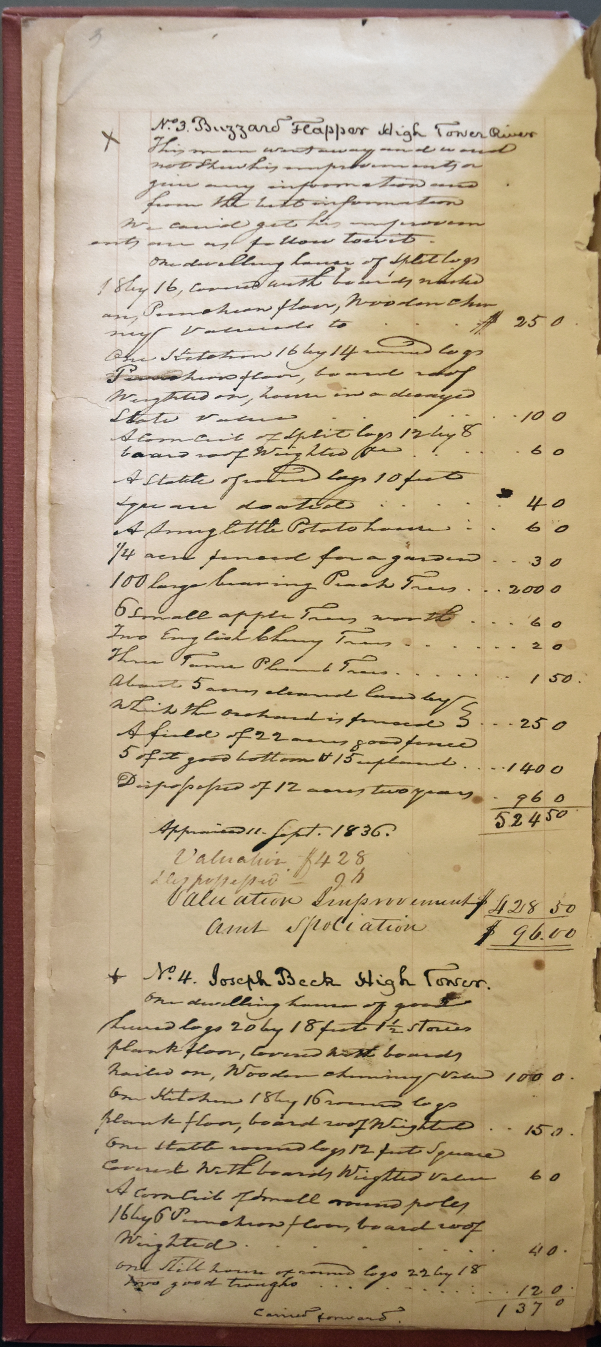 3
x No. 3. Buzzard Flapper High Tower River
This man went away and would
not Shew his improvements or
give any information and
from the best information
We could get his improvem
ents are as follow towit.
One dwelling house of Split logs
18 by 16, covered with boards nailed
on, Puncheon floor, Wooden chim
ney Valued to . . . $ 25 0
One Kitchen 16 by 14 round logs
Puncheon floor, board roof
Weighted on, house in a decayed
State Value . . . 10 0
A Corn Crib of Split logs 12 by 8
board roof Weighted . . . 6 0
A Stable of round logs 10 feet
Square . . . 4 0
A Snug little Potato house . . 6 0
1/4 acre fenced for a garden . . 3 0
100 large bearing Peach Trees . . . 200 0
6 Small apple Trees worth . . 6 0
Two English Cherry Trees . . . 2 0
Three Tame Plumb Trees . . . 1 50.
About 5 acres cleared land by
Which the orchard is fenced . . . 25 0
A field of 22 acres good fence
5 of it good bottom & 15 upland . . . 140 0
Dispossessed of 12 acres two years . 96 0
524 50
Appraised 11 Sept. 1836.
Valuation $428
dispossessed - 96
Valuation Improvement $ 428 50
Amt Spoliation $ 96.00
x No. 4. Joseph Beck High Tower.
One dwelling house of good
hewed logs 20 by 18 feet 1 1/2 Stories
plank floor, covered with boards
nailed on, Wooden chimney Value 100 0.
One Kitchen 18 by 16 round logs
plank floor, board roof Weighted . . 15 0.
One Stable round logs 12 feet Square
Covered With boards Weighted Value 6 0
A corn Crib of Small round poles
16 by 6 Puncheon floor, board roof
Weighted . . . 4 0.
One Still house of round logs 22 by 18
two good troughs . . . 12 0.
137 0
Carried forward.